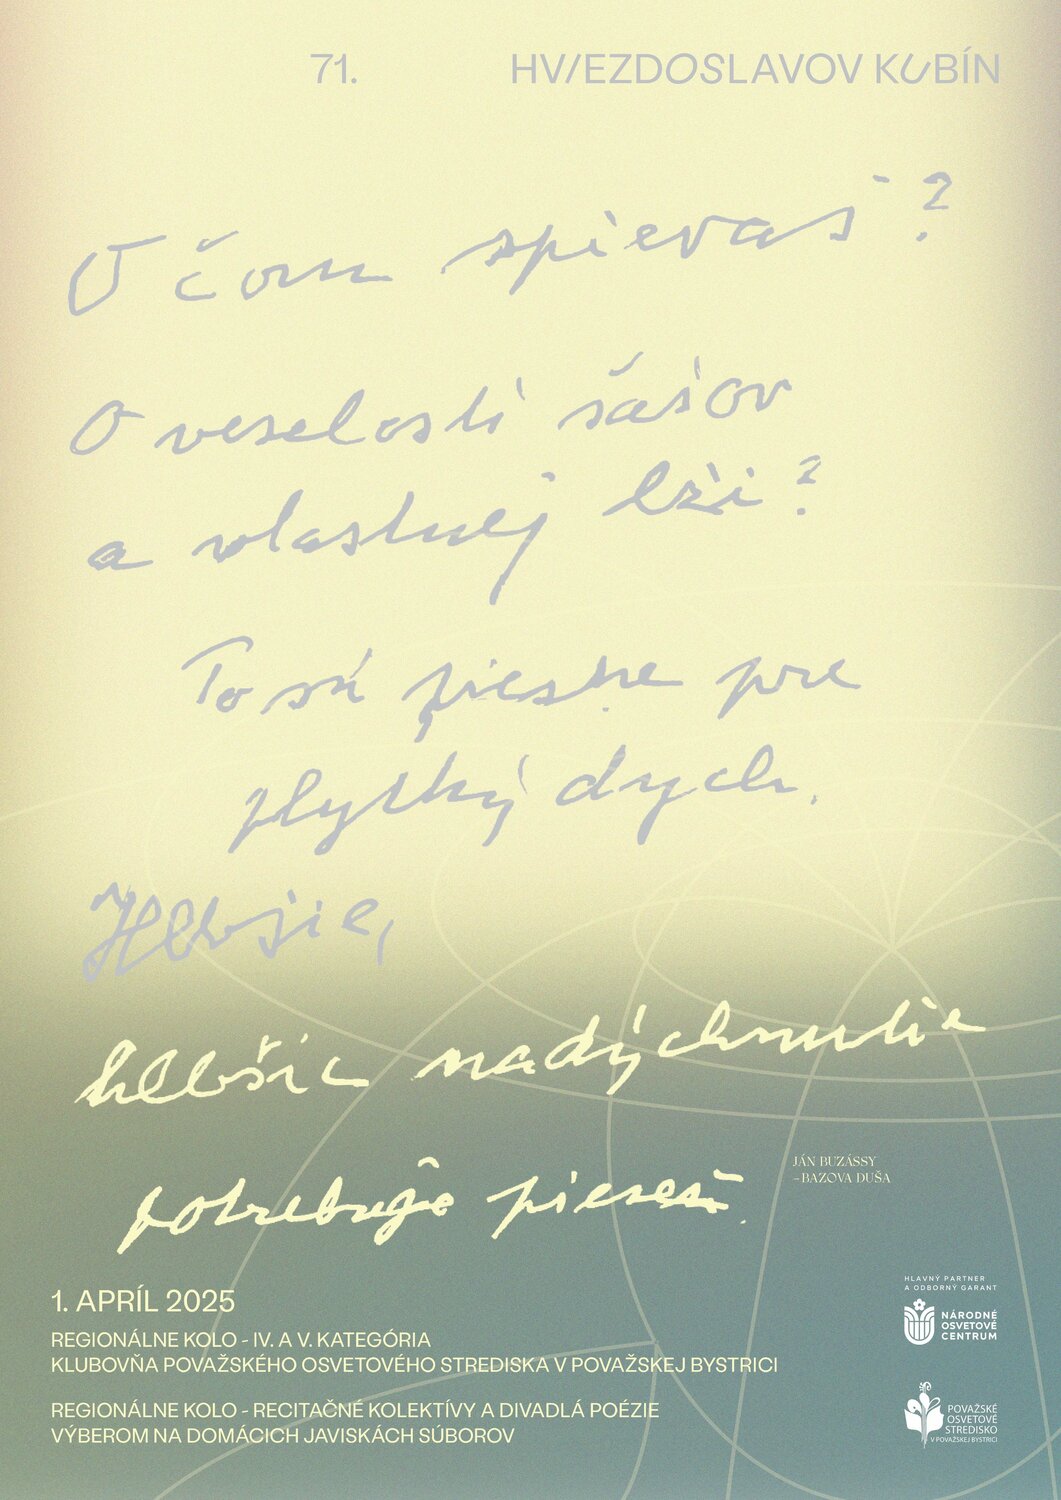 71. HVIEZDOSLAVOV KUBÍN
O čom spievaš?
O veselosti šašov
a vlastnej lži?
To sú piesne pre
plytký dych.
Hlbšie,
hlbšie nadýchnutie
potrebuje pieseň.
JÁN BUZÁSSY
– BAZOVA DUŠA
1. APRÍL 2025
REGIONÁLNE KOLO - IV. A V. KATEGÓRIA
KLUBOVŇA POVAŽSKÉHO OSVETOVÉHO STREDISKA V POVAŽSKEJ BYSTRICI
REGIONÁLNE KOLO - RECITAČNÉ KOLEKTÍVY A DIVADLÁ POÉZIE
VÝBEROM NA DOMÁCICH JAVISKÁCH SÚBOROV
HLAVNÝ PARTNER
A ODBORNÝ GARANT
NÁRODNÉ
OSVETOVÉ
CENTRUM
POVAŽSKÉ
OSVETOVÉ
STREDISKO
V POVAŽSKEJ BYSTRICI